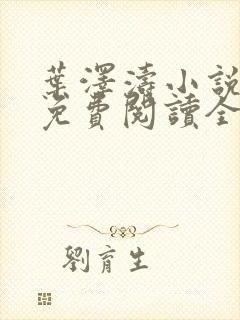 葉澤濤小說
免費閱讀全
劉育生